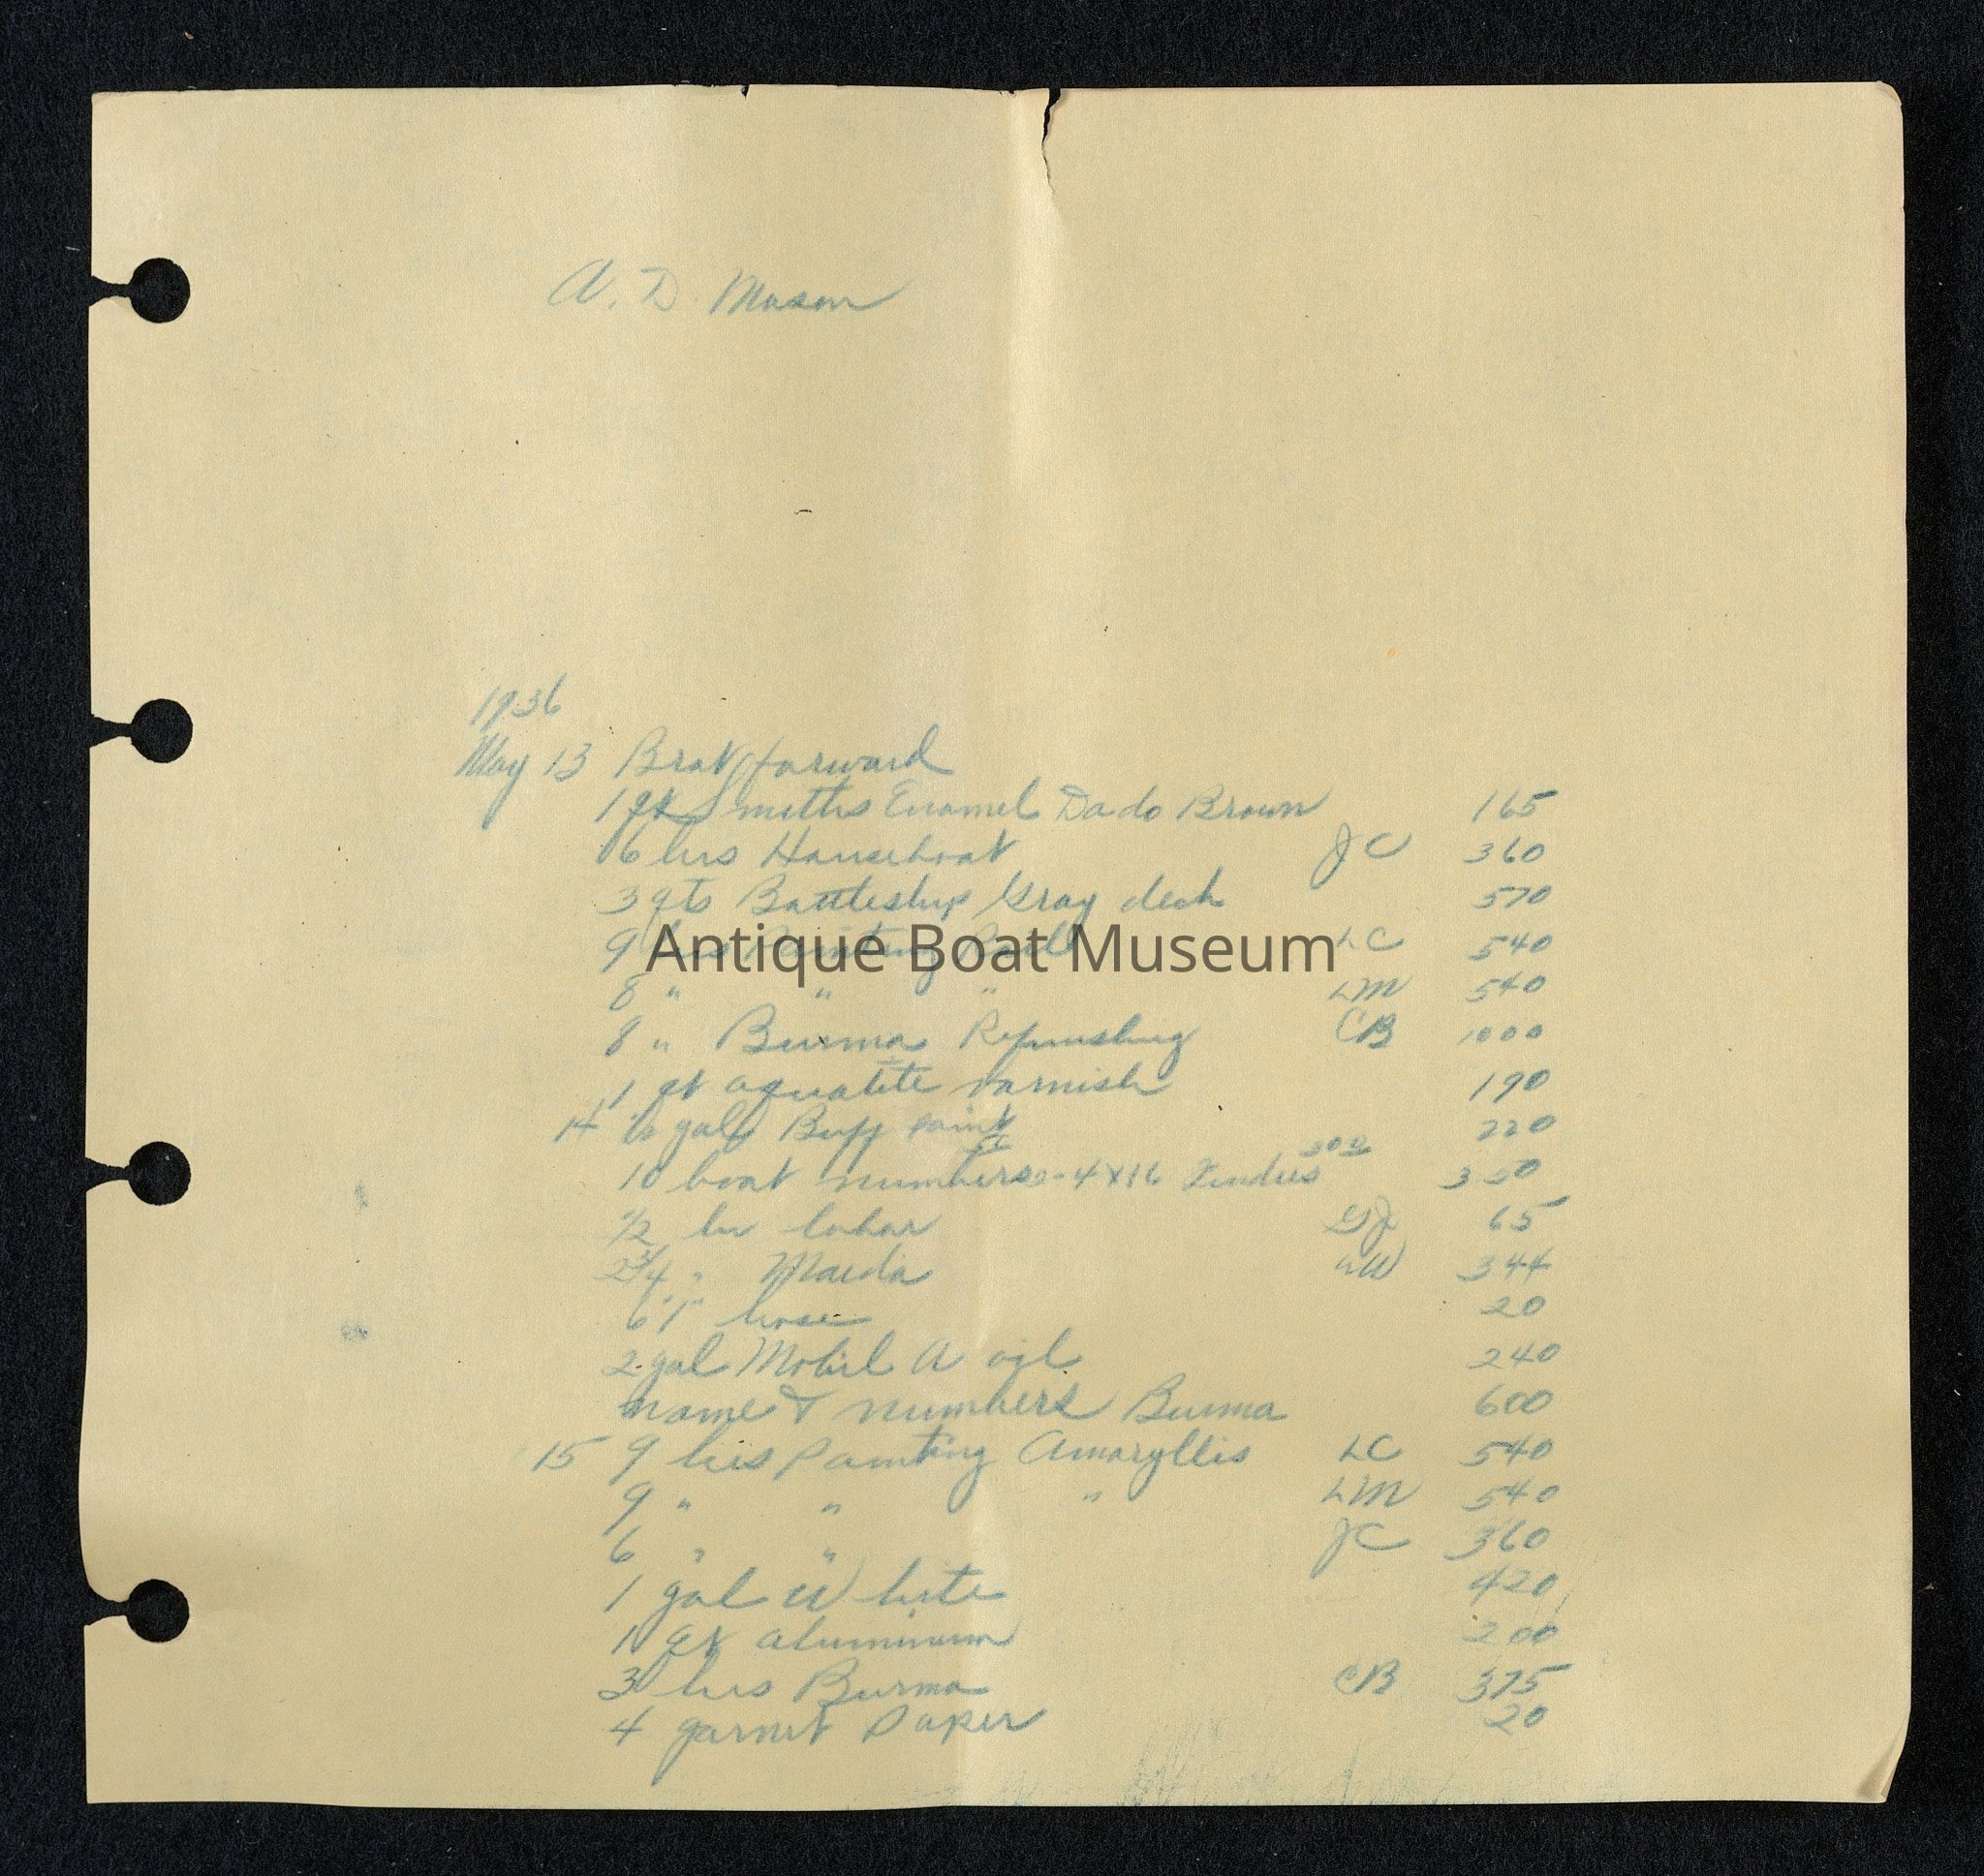 A. D. Mason
1936
May 13 Brot forward
1 qt Smiths Enamel Dado Brown 165
6 hrs Houseboat JC 360
3 qts Battleship Gray deck 570
9 hrs Painting LC 540
Antique Boat Museum
8 " " " LM 540
8 " Burma Refinishing CB 1000
1 qt aquatite varnish 190
14 gal Buff paint 220
10 boat numbers 2-4x16 300 350
1/2 hr labor GJ 65
2 3/4 " Maida 344
6' 1" hose 20
2 gal Mobil A oil 240
name & numbers Burma 600
15 9 hrs Painting Amaryllis LC 540
9 " " " LM 540
6 " " JC 360
1 gal White 420
1 qt aluminum 200
3 hrs Burma CB 375
4 garnet Paper 20